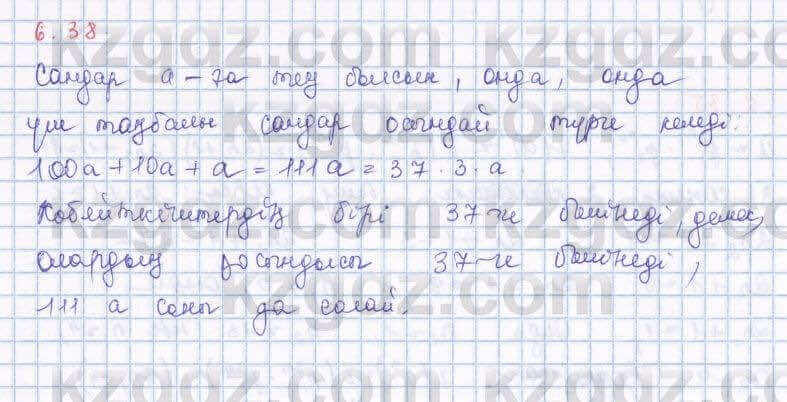 6.38.
Сандар а-ға тең болсын, онда, онда
үш таңбалы сандар осындай түрге келеді:
100а + 10а + а = 111а = 37 · 3 · а
Көбейткіштердің бірі 37-ге бөлінеді, демек,
олардың қосындысы 37-ге бөлінеді,
111 а саны да солай.
kzgdz.com